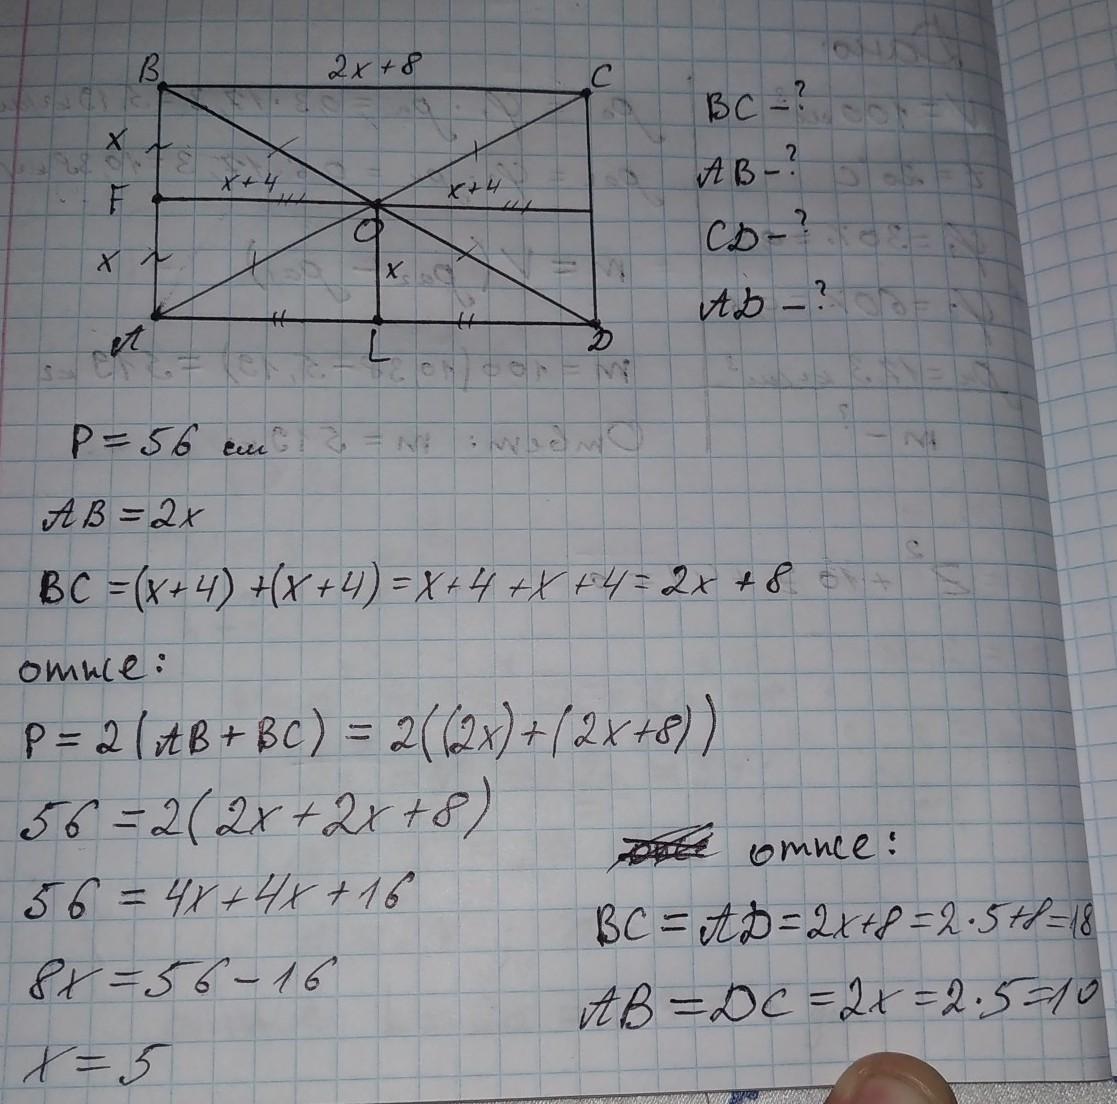 B 2x+8 C
x
F x+4 x+4
O
x x
A L D
BC – ?
AB – ?
CD – ?
AD – ?
P = 56 см
AB = 2x
BC = (x+4) + (x+4) = x+4 + x + 4 = 2x + 8
отже:
P = 2(AB + BC) = 2((2x) + (2x+8))
56 = 2(2x + 2x + 8)
56 = 4x + 4x + 16
8x = 56 – 16
x = 5
отже:
BC = AD = 2x+8 = 2·5+8=18
AB = DC = 2x = 2·5=10